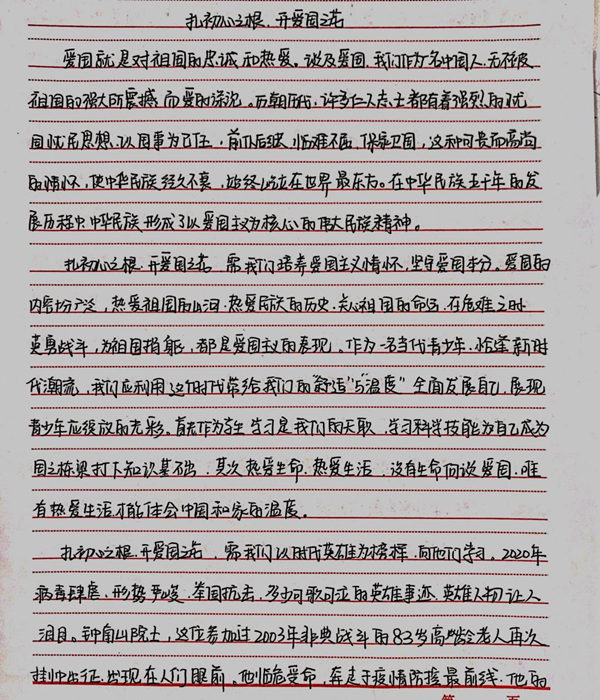 扎初心之根，开爱国之花
爱国就是对祖国的忠诚和热爱。谈及爱国，我们作为名中国人，无不被
祖国的强大所震撼而爱的深沉。历朝历代，许多仁人志士都有着强烈的忧
国忧民思想，以国事为己任，前仆后继，临难不屈，保家卫国，这种可贵而高尚
的情怀，使中华民族经久不衰，始终屹立在世界最东方。在中华民族五千年的发
展历程中，中华民族形成了以爱国主义为核心的伟大民族精神。
扎初心之根，开爱国之花，需我们培养爱国主义情怀，坚守爱国本分。爱国的
内容广泛，热爱祖国的山河，热爱民族的历史，关心祖国的命运，在危难之时
英勇战斗，为祖国捐躯，都是爱国主义的表现。作为一名当代青少年，恰逢新时
代潮流，我们应利用这个时代带给我们的“舒适”与“温度”全面发展自己，展现
青少年应绽放的光彩。首先作为学生学习是我们的天职，学习科学技能为自己成为
国之栋梁打下知识基础，其次热爱生命，热爱生活，没有生命何谈爱国，唯
有热爱生活才能体会中国和家的温度。
扎初心之根，开爱国之花，需我们以时代英雄为榜样，向他们学习。2020年
病毒肆虐，形势严峻，举国抗击，多少可歌可泣的英雄事迹，英雄人物让人
泪目。钟南山院士，这位参加过2003年非典战斗的83岁高龄老人再次
挂帅出征，出现在人们眼前。他临危受命，奔走于疫情防控最前线，他的
第 页